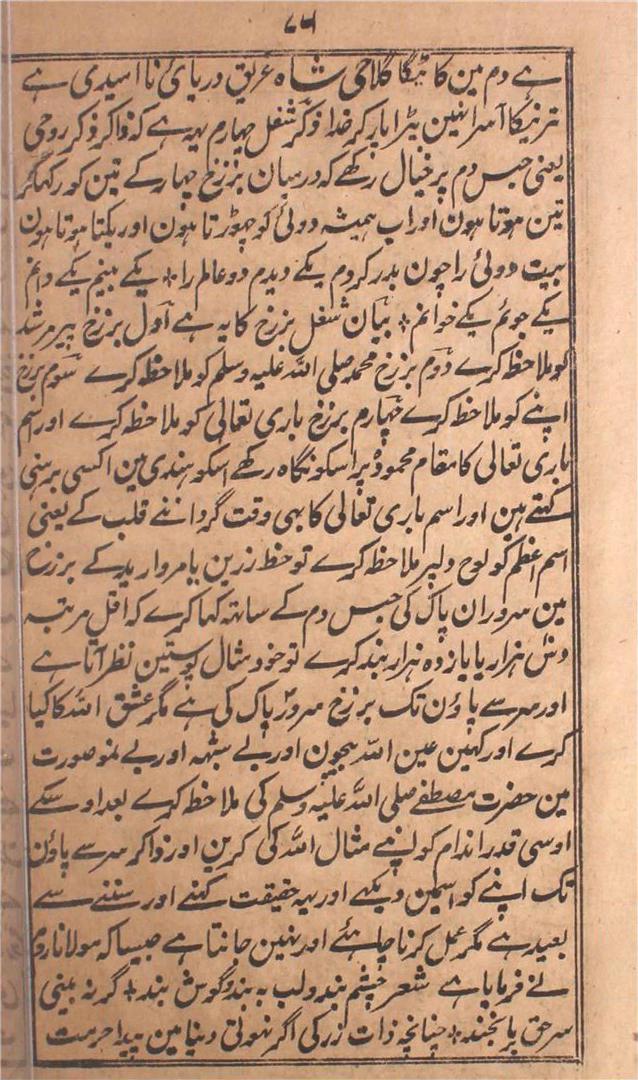 ۷۵
ہے دم مین کا ٹیگا گلا حمی شاہ غریق دریائ نا امیدی ہے
ترنیکا آسرا نہین بیڑا پار کر خدا و گر شغل چہارم یہہ ہے کہ ذاکر ذکر روحی
یعنی حبس دم پر خیال رکھے کہ درمیان برزخ چہار کے تین کو رکھاگر
تین ہوتا ہون اور اب ہمیشہ دوئی کو چھوڑتا ہون اور یکتا ہوتا ہون
بیت دوئی را چون بدر کردم یکے دیدم دو عالم را ٭ یکے بینم یکے دانم
یکے جویم یکے خوانم ٭ بیان شغل برزخ کا یہ ہے اول برزخ پیر مرشد
کو ملاحظہ کرے دوم برزخ محمد صلی اللہ علیہ وسلم کو ملاحظہ کرے سوم برزخ
اپنے کو ملاحظہ کرے چہارم برزخ باری تعالی کو ملاحظہ کرے اور اسم
باری تعالی کا مقام محمود پر اسکو نگاہ رکھے اسکو ہندی مین اکسی برسنی
کہتے ہین اور اسم باری تعالی کا بہی وقت گرداننے قلب کے یعنی
اسم اعظم کو لوح دلپر ملاحظہ کرے تو خط زرین یا مروارید کے برزخ
مین سروران پاک کی حبس دم کے ساتہہ کہا کرے کہ اقل مرتبہ
دس ہزار یا یازدہ ہزار بند کرے تو خود مثال پوستین نظر آتا ہے
اور سر سے پاؤن تک برزخ سرور پاک کی ہے مگر عشق اللہ کا کیا
کرے اور کہین عین اللہ بیچون اور بے شبہہ اور بے نمو صورت
مین حضرت مصطفے صلی اللہ علیہ وسلم کی ملاحظہ کرے بعد اوسکے
اوسی قدر اندام کو اپنے مثال اللہ کی کرین اور ذاکر سر سے پاؤن
تک اپنے کو اسمین دیکہے اور یہہ حقیقت کہنے اور سننے سے
بعید ہے مگر عمل کرنا چاہئے اور نہین جانتا ہے جیسا کہ مولانا روم
نے فرمایا ہے شعر چشم بند و لب بہ بند و گوش بند ٭ گر نہ بینی
سر حق بر ما بخند ٭ چنانچہ ذات زر کی اگر نہوتی دنیا مین پیدا حرمت